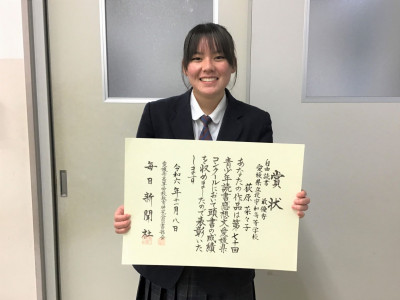 賞状
自由読書
最優秀
愛媛県立北宇和高等学校
荻原 菜々子
あなたの作品は第七十回
青少年読書感想文愛媛県
コンクールにおいて頭書の成績
を収めましたので表彰いた
します
令和六年十一月八日
毎日新聞社